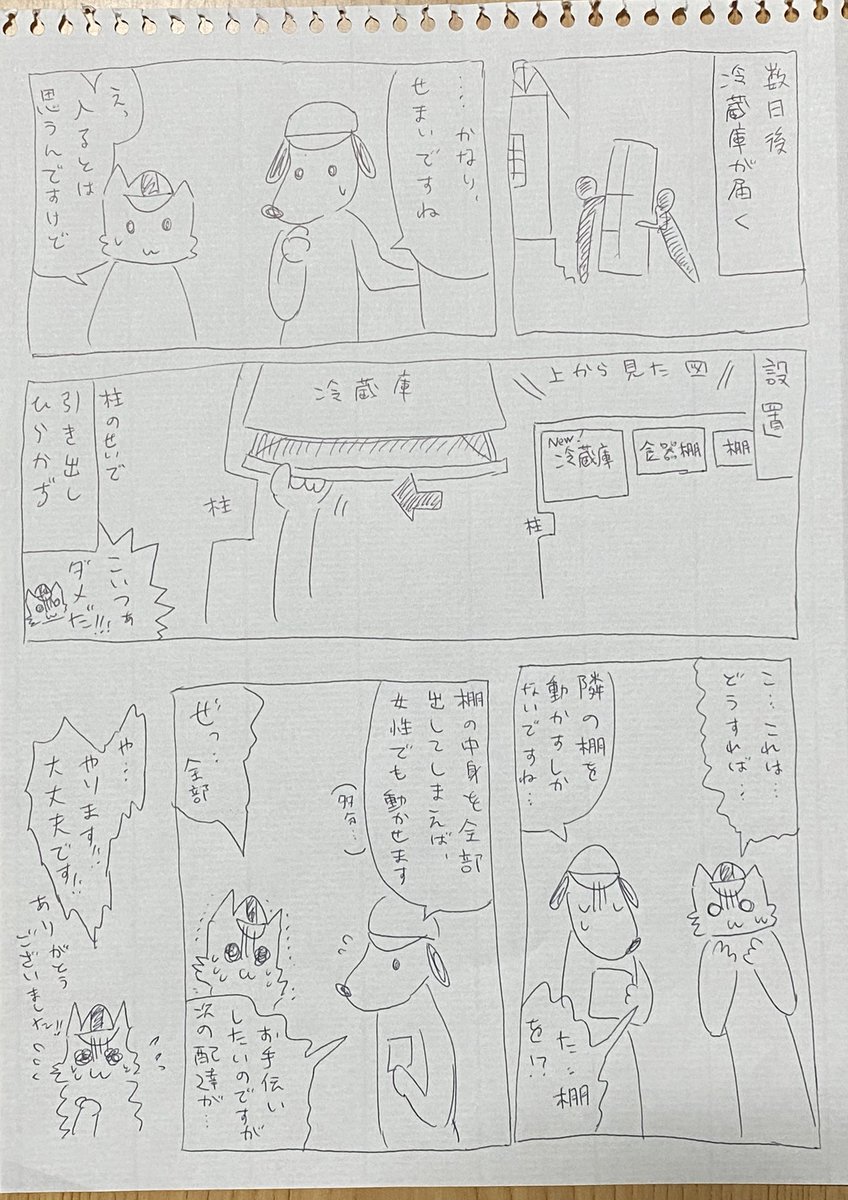 数日後
冷蔵庫が届く
…かなり、
せまいですね
えっ
入るとは
思うんですけど
設置
上から見た図
New!
冷蔵庫
食器棚
棚
柱
冷蔵庫
柱
柱のせいで
引き出し
ひらかず
こいつぁ
ダメだ!!!
こ…これは…
どうすれば…
隣の棚を
動かすしか
ないですね…
た…棚
を!?
棚の中身を全部
出してしまえば、
女性でも動かせます
(多分…)
ぜっ…
全部
お手伝い
したいのですが
次の配達が…
や…
やります!!
大丈夫です!!
ありがとう
ございました!!